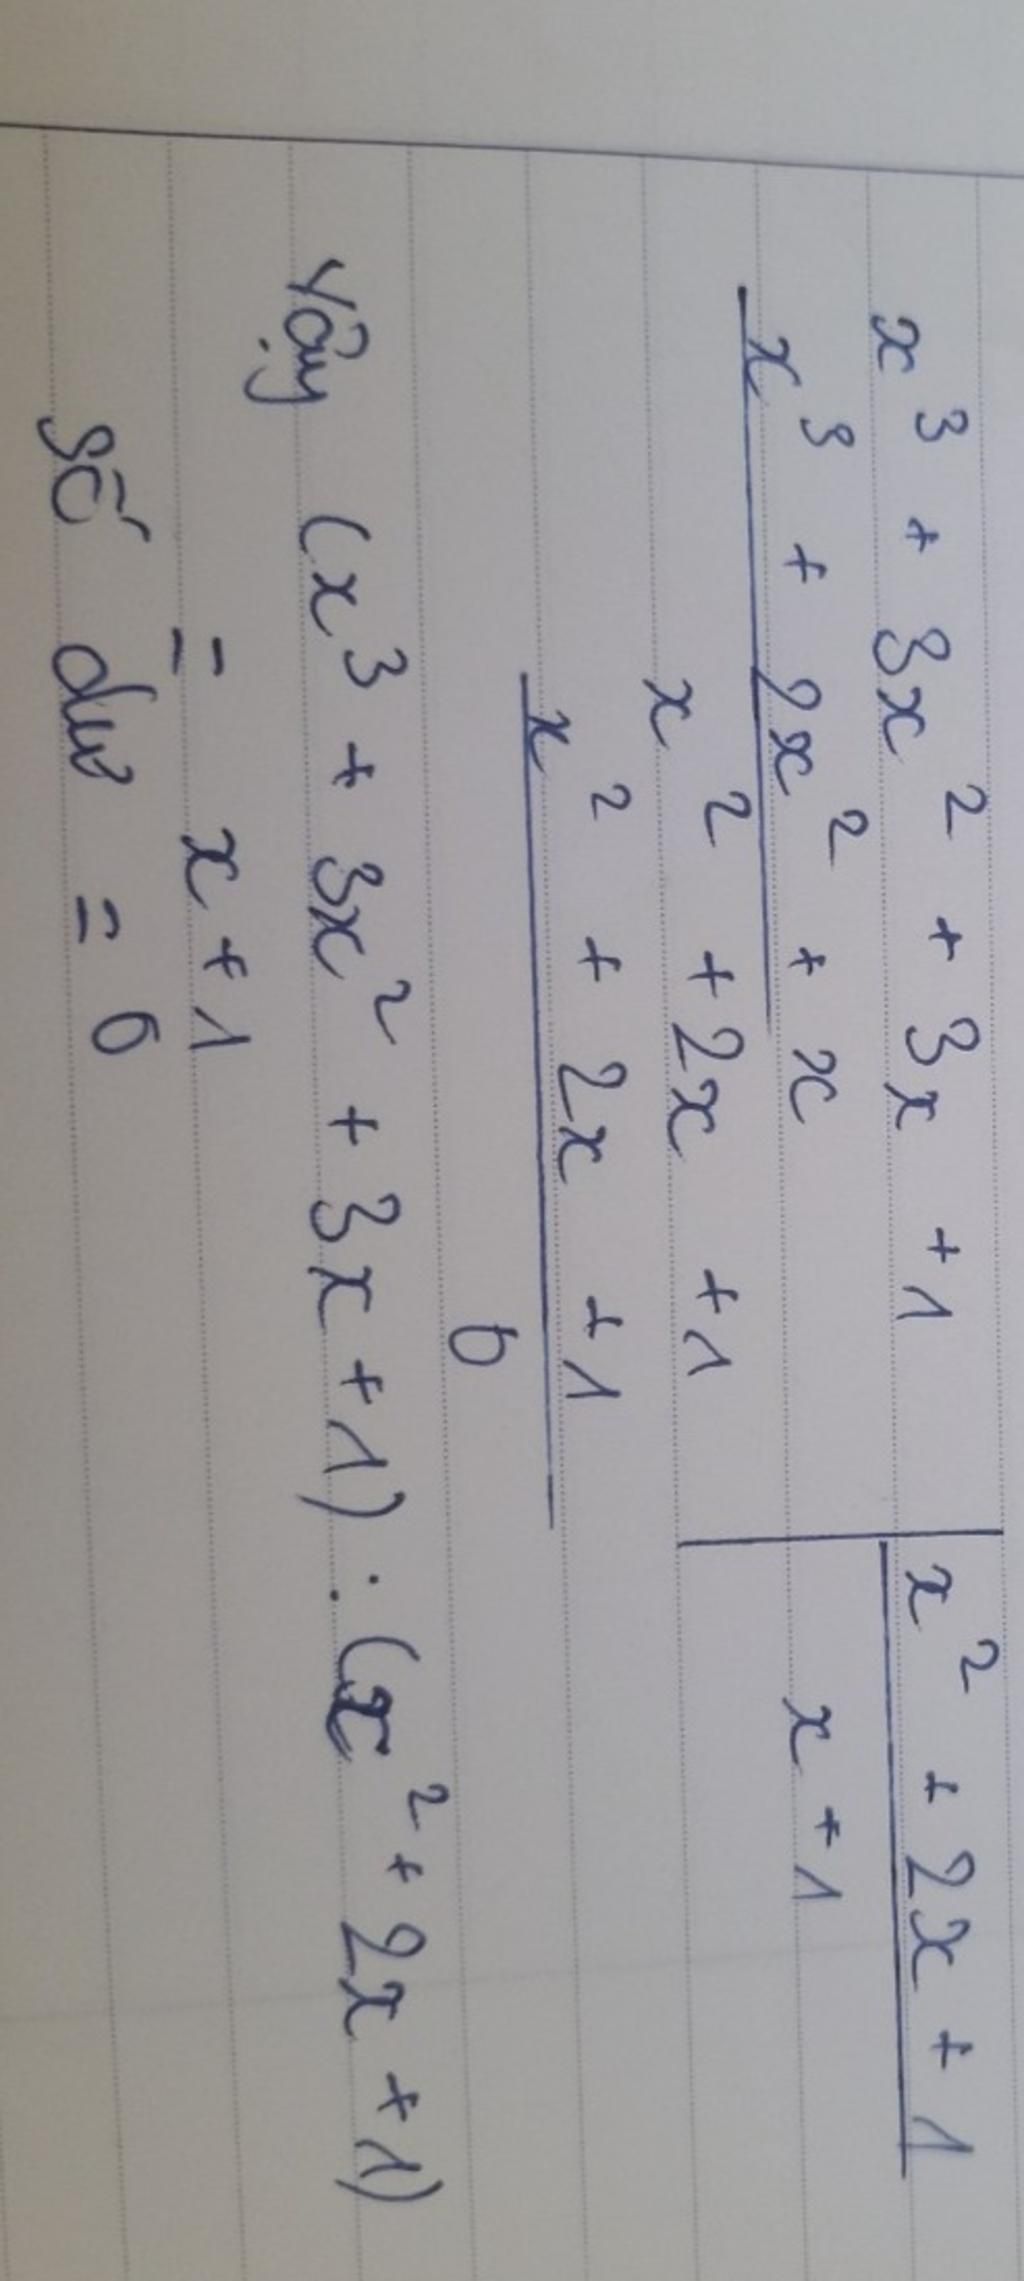 x³ + 3x² + 3x + 1 | x² + 2x + 1
x³ + 2x² + x | x + 1
x² + 2x + 1
x² + 2x + 1
0
Vậy (x³ + 3x² + 3x + 1) : (x² + 2x + 1)
= x + 1
Số dư = 0